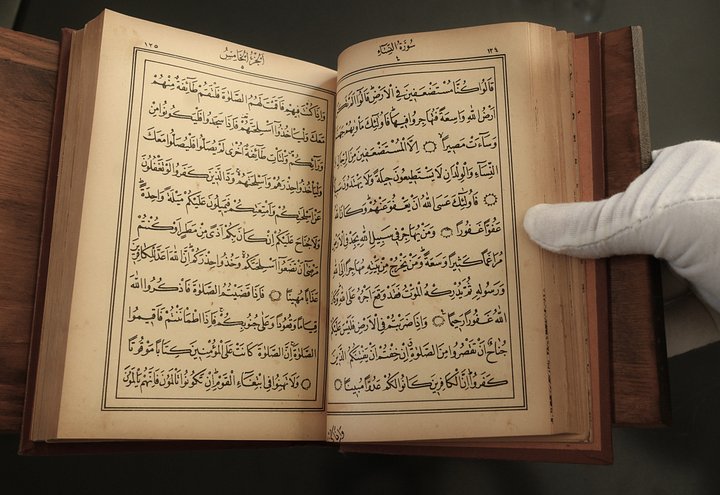 سُورَةُ النِّسَاءِ
٤
قَالُوا كُنَّا مُسْتَضْعَفِينَ فِي الْاَرْضِ قَالُوا اَلَمْ تَكُنْ
اَرْضُ اللّٰهِ وَاسِعَةً فَتُهَاجِرُوا فِيهَا فَاُولٰئِكَ مَأْوٰيهُمْ جَهَنَّمُ
وَسَاءَتْ مَصِيرًا ۝ اِلَّا الْمُسْتَضْعَفِينَ مِنَ الرِّجَالِ
النِّسَاءِ وَالْوِلْدَانِ لَا يَسْتَطِيعُونَ حِيلَةً وَلَا يَهْتَدُونَ سَبِيلًا
۝ فَاُولٰئِكَ عَسَى اللّٰهُ اَنْ يَعْفُوَ عَنْهُمْ وَكَانَ اللّٰهُ
عَفُوًّا غَفُورًا ۝ وَمَنْ يُهَاجِرْ فِي سَبِيلِ اللّٰهِ يَجِدْ فِي الْاَرْضِ
مُرَاغَمًا كَثِيرًا وَسَعَةً وَمَنْ يَخْرُجْ مِنْ بَيْتِهِ مُهَاجِرًا اِلَى اللّٰهِ
وَرَسُولِهِ ثُمَّ يُدْرِكْهُ الْمَوْتُ فَقَدْ وَقَعَ اَجْرُهُ عَلَى اللّٰهِ وَكَانَ
اللّٰهُ غَفُورًا رَحِيمًا ۝ وَاِذَا ضَرَبْتُمْ فِي الْاَرْضِ فَلَيْسَ عَلَيْكُمْ
جُنَاحٌ اَنْ تَقْصُرُوا مِنَ الصَّلٰوةِ اِنْ خِفْتُمْ اَنْ يَفْتِنَكُمُ الَّذِينَ
كَفَرُوا اِنَّ الْكَافِرِينَ كَانُوا لَكُمْ عَدُوًّا مُبِينًا ۝
اَلْجُزْءُ الْخَامِسُ
وَاِذَا كُنْتَ فِيهِمْ فَاَقَمْتَ لَهُمُ الصَّلٰوةَ فَلْتَقُمْ طَائِفَةٌ مِنْهُمْ
مَعَكَ وَلْيَأْخُذُوا اَسْلِحَتَهُمْ فَاِذَا سَجَدُوا فَلْيَكُونُوا مِنْ
وَرَائِكُمْ وَلْتَأْتِ طَائِفَةٌ اُخْرٰى لَمْ يُصَلُّوا فَلْيُصَلُّوا مَعَكَ
وَلْيَأْخُذُوا حِذْرَهُمْ وَاَسْلِحَتَهُمْ وَدَّ الَّذِينَ كَفَرُوا لَوْ تَغْفُلُونَ
عَنْ اَسْلِحَتِكُمْ وَاَمْتِعَتِكُمْ فَيَمِيلُونَ عَلَيْكُمْ مَيْلَةً وَاحِدَةً
وَلَا جُنَاحَ عَلَيْكُمْ اِنْ كَانَ بِكُمْ اَذًى مِنْ مَطَرٍ اَوْ كُنْتُمْ
مَرْضٰى اَنْ تَضَعُوا اَسْلِحَتَكُمْ وَخُذُوا حِذْرَكُمْ اِنَّ اللّٰهَ اَعَدَّ لِلْكَافِرِينَ
عَذَابًا مُهِينًا ۝ فَاِذَا قَضَيْتُمُ الصَّلٰوةَ فَاذْكُرُوا اللّٰهَ
قِيَامًا وَقُعُودًا وَعَلٰى جُنُوبِكُمْ فَاِذَا اطْمَأْنَنْتُمْ فَاَقِيمُوا
الصَّلٰوةَ اِنَّ الصَّلٰوةَ كَانَتْ عَلَى الْمُؤْمِنِينَ كِتَابًا مَوْقُوتًا
۝ وَلَا تَهِنُوا فِي ابْتِغَاءِ الْقَوْمِ اِنْ تَكُونُوا تَأْلَمُونَ فَاِنَّهُمْ يَأْلَمُونَ